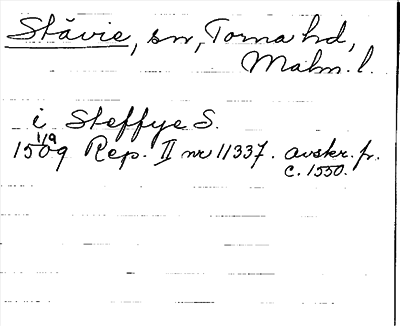 Stävie, sn, Torna hd,
Malm. l.
i Steffye S.
1509 1/9 Rep. II nr 11337. avskr. fr.
c. 1550.